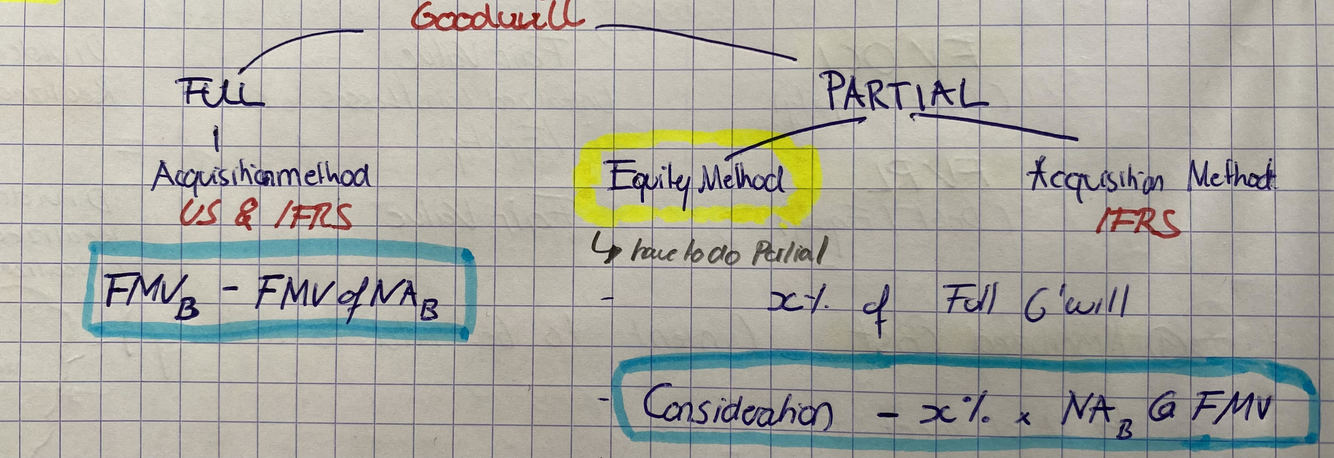 Goodwill
FULL PARTIAL
Acquisition method Equity Method Acquisition Method
US & IFRS IFRS
↳ have to do Partial
FMV_B - FMV of NA_B - x% of Full G'will
- Consideration - x% x NA_B @ FMV